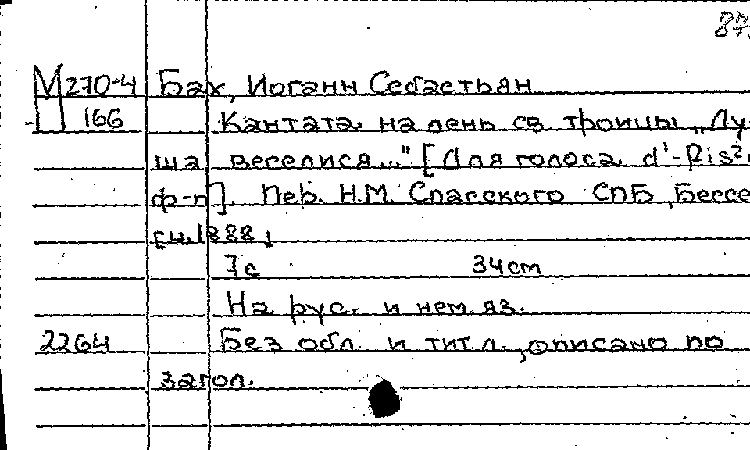 873
М270-4 Бах, Иоганн Себастьян
П 166 Кантата на день св. троицы „Ду-
ша веселися..." [Для голоса d'-
ф-п]. Пер. Н.М. Спасского СПБ, Бессе
[ц.1888]
7с 34cm
На рус. и нем. яз.
2264 Без обл. и тит. л., описано по
загол.